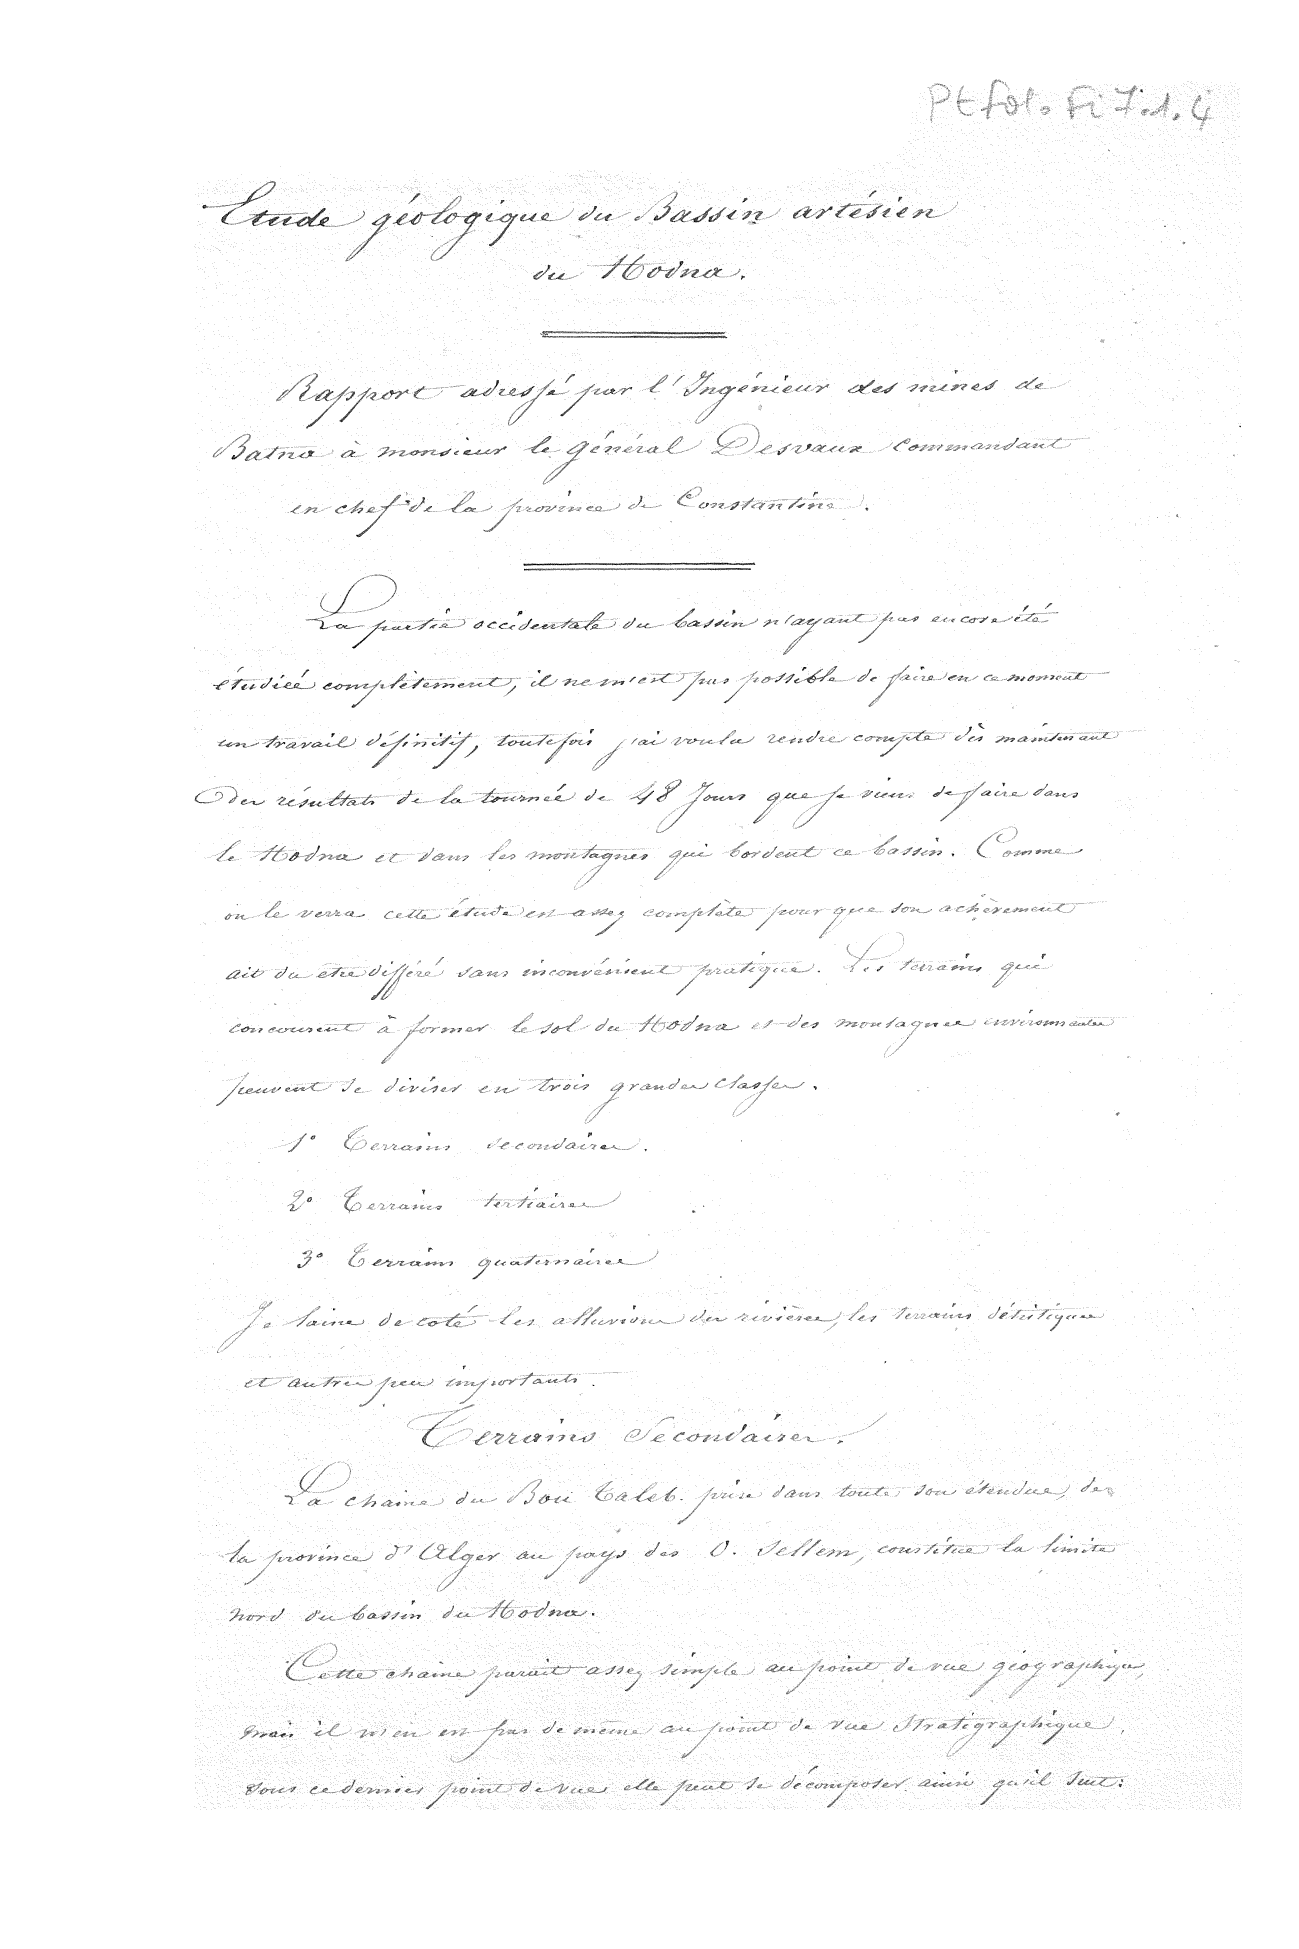 Pt fol. Fi 7.1.4
Etude géologique du Bassin artésien
du Hodna.
Rapport adressé par l'Ingénieur des mines de
Batna à monsieur le général Desvaux Commandant
en chef de la province de Constantine.
La partie occidentale du bassin n'ayant pas encore été
étudiée complètement, il ne m'est pas possible de faire en ce moment
un travail définitif, toutefois j'ai voulu rendre compte dès maintenant
des résultats de la tournée de 48 Jours que je viens de faire dans
le Hodna et dans les montagnes qui bordent ce bassin. Comme
on le verra cette étude est assez complète pour que son achèvement
ait du etre différé sans inconvénient pratique. Les terrains qui
concourent à former le sol du Hodna et des montagnes environnantes
peuvent se diviser en trois grandes classes.
1° Terrains secondaires.
2° Terrains tertiaires
3° Terrains quaternaires
Je laisse de coté les alluvions des rivières, les terrains détritiques
et autres peu importants.
Terrains Secondaires.
La chaine du Bou Taleb. prise dans toute son étendue, de
la province d'Alger au pays des O. Sellem, constitue la limite
nord du bassin du Hodna.
Cette chaine parait assez simple au point de vue géographique,
mais il n'en est pas de même au point de vue Stratigraphique.
Sous ce dernier point de vue elle peut se décomposer ainsi qu'il suit: